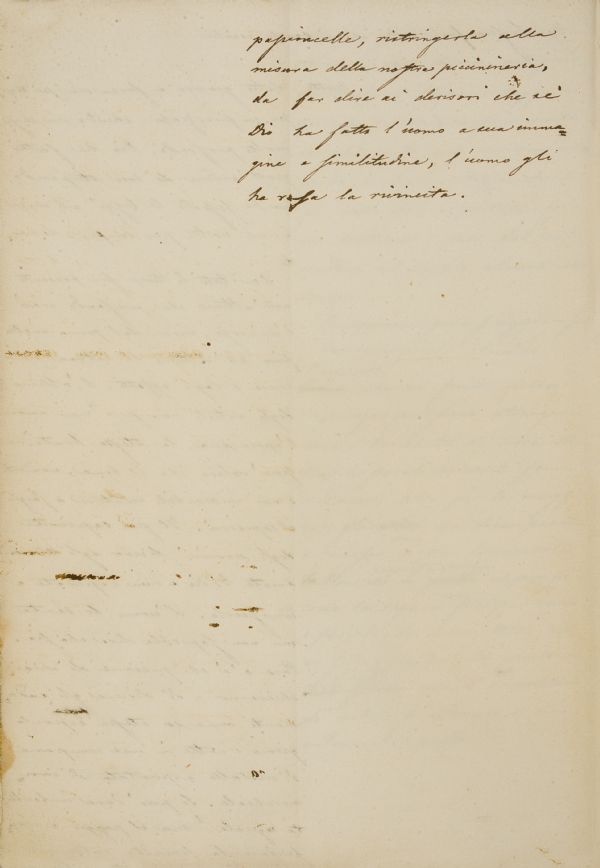 passioncelle, ristringerla alla
misura della nostra piccinineria,
da far dire ai derisori che se
Dio ha fatto l'uomo a sua imma=
gine e similitudine, l'uomo gli
ha resa la rivincita.